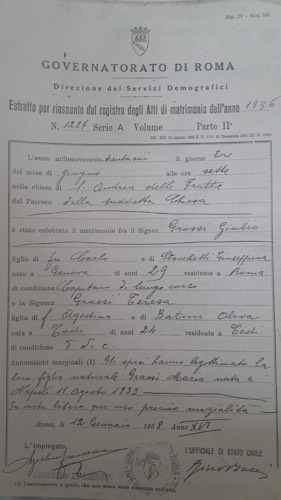 Pag. IV - Mod. 169
GOVERNATORATO DI ROMA
Direzione dei Servizi Demografici
Estratto per riassunto dal registro degli Atti di matrimonio dell'anno 1936
N. 1227 Serie A Volume Parte IIª
L'anno millenovecento trentasei il giorno tre
del mese di giugno alle ore sette
nella chiesa di S. Andrea delle Fratte
dal Parroco della suddetta Chiesa
è stato celebrato il matrimonio fra il Signor Grossi Giulio
figlio di fu Carlo e di Stocchetti Giuseppina
nato a Genova di anni 29 residente a Roma
di condizione Capitano di lungo corso
e la Signora Grassi Teresa
figlia di f Agostino e Batini Oliva
nata a Todi di anni 24 residente a Todi
di condizione
Annotazioni marginali (1) Gli sposi hanno legittimato la
loro figlia naturale Grassi Maria nata a
Napoli 11 agosto 1933 -
In carta libera per uso premio nuzialità -
Roma, li 12 Gennaio 1938 Anno XVI
L'impiegato L'UFFICIALE DI STATO CIVILE